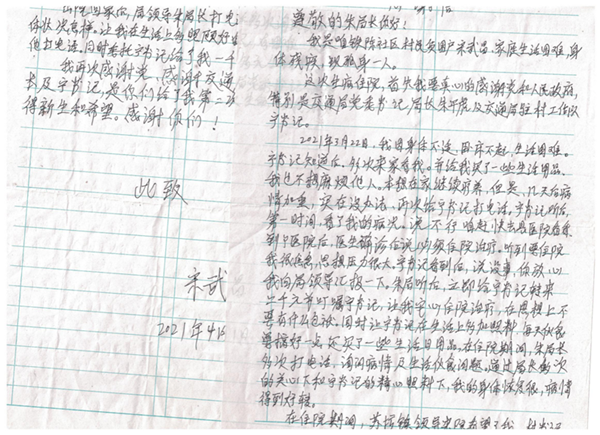 尊敬的朱局长你好!
我是唯铁陈社区村民贫困户宋武昌,家庭生活困难,身
体残疾,现单身一人。
这次生病住院,首先我要真心的感谢党和人民政府,
特别是交通局党委书记,局长朱
及交通局驻村工作队
宇书记。
2021年3月22日,我因身体不适,卧床不起,生活困难。
宇书记知道后,多次来家看我。并给我买了一些生活用品。
我也不想麻烦他人。本想在家继续用药,但是,几天后病
情加重,实在没办法,再次给宇书记打电话,宇书记听后
第一时间,看了我的病况。说不行,咱赶快去县医院看看
到中医院后,医生确诊后说必须住院治疗。听到要住院
我很焦急,思想压力很大。宇书记看到后,说没事,你放心
我向局领导汇报一下。朱局听后,立即给宇书记转来
二千元并叮嘱宇书记,让我安心住院治疗,在思想上不
要有什么包袱。同时让宇书记在生活上多加照料,每天饮食
要搞好一点,还买了一些生活日用品。在住院期间,朱局长
多次打电话,询问病情及生活饮食问题。通过局长多次
的关心下和宇书记的精心照料下,我的身体恢复很,病情
得到好转。
在住院期间,
镇领导来院看望了我
出院回家后,局领导朱局长打电
体状况怎样。让我在生活上多照顾好
他打电话,同时委托宇书记给了我一千
我再次感谢党、感谢交通
长及宇书记,是你们给了我第二次
得新生和希望。感谢你们!
此致
宋武
2021年4月